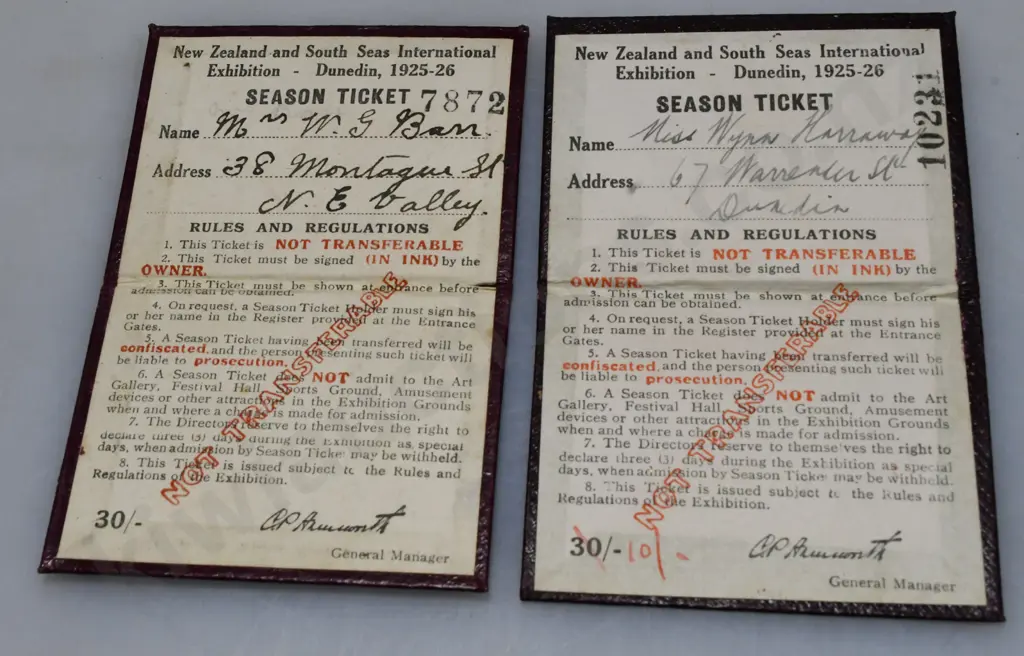 New Zealand and South Seas International
Exhibition - Dunedin, 1925-26
SEASON TICKET 7872
Name Mrs W. G Barr.
Address 38 Montague St
N. E Valley.
RULES AND REGULATIONS
1. This Ticket is NOT TRANSFERABLE
2. This Ticket must be signed (IN INK) by the
OWNER.
3. This Ticket must be shown at entrance before
admission can be obtained.
4. On request, a Season Ticket Holder must sign his
or her name in the Register provided at the Entrance
Gates.
5. A Season Ticket having been transferred will be
confiscated, and the person presenting such ticket will
be liable to prosecution.
6. A Season Ticket does NOT admit to the Art
Gallery, Festival Hall, Sports Ground, Amusement
devices or other attractions in the Exhibition Grounds
when and where a charge is made for admission.
7. The Directors reserve to themselves the right to
declare three (3) days during the Exhibition as special
days, when admission by Season Ticket may be withheld.
8. This Ticket is issued subject to the Rules and
Regulations of the Exhibition.
NOT TRANSFERABLE
30/-
General Manager
New Zealand and South Seas International
Exhibition - Dunedin, 1925-26
SEASON TICKET
10231
Name Miss Wynn Harraway
Address 67 Warrender St
Dunedin
RULES AND REGULATIONS
1. This Ticket is NOT TRANSFERABLE
2. This Ticket must be signed (IN INK) by the
OWNER.
3. This Ticket must be shown at entrance before
admission can be obtained.
4. On request, a Season Ticket Holder must sign his
or her name in the Register provided at the Entrance
Gates.
5. A Season Ticket having been transferred will be
confiscated, and the person presenting such ticket will
be liable to prosecution.
6. A Season Ticket does NOT admit to the Art
Gallery, Festival Hall, Sports Ground, Amusement
devices or other attractions in the Exhibition Grounds
when and where a charge is made for admission.
7. The Directors reserve to themselves the right to
declare three (3) days during the Exhibition as special
days, when admission by Season Ticket may be withheld.
8. This Ticket is issued subject to the Rules and
Regulations of the Exhibition.
NOT TRANSFERABLE
30/- 10/-
General Manager